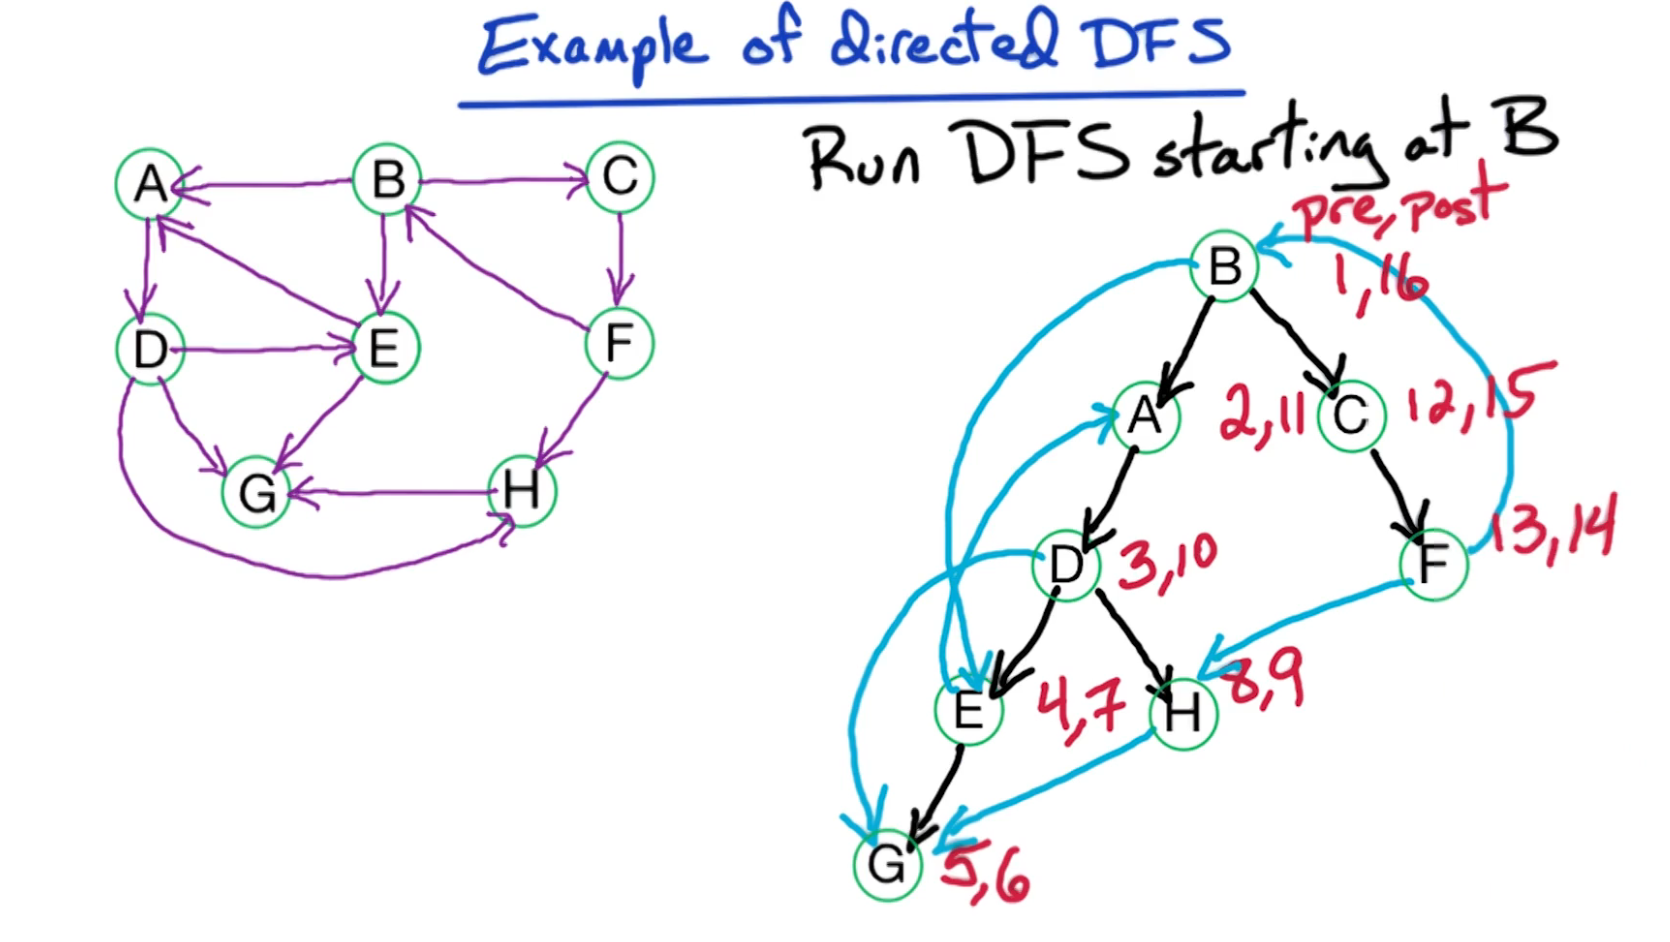 Example of directed DFS
Run DFS starting at B
pre, post
A B C
D E F
G H
B 1, 16
A 2, 11 C 12, 15
D 3, 10 F 13, 14
E 4, 7 H 8, 9
G 5, 6